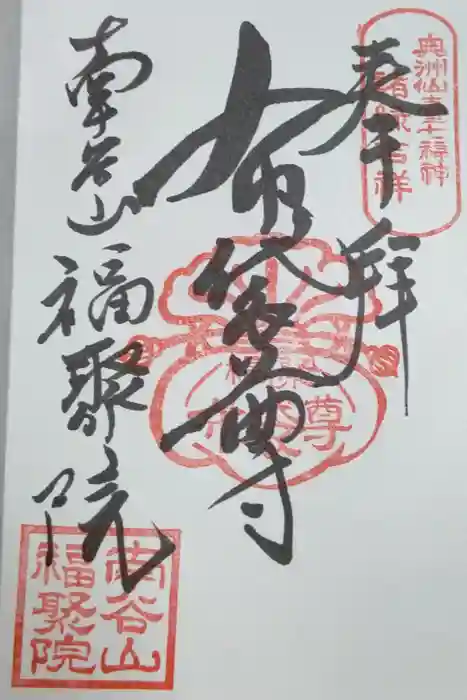 奥州仙臺七福神
諸縁吉祥
奉拝
布袋尊
南谷山 福聚院
南谷山
福聚院